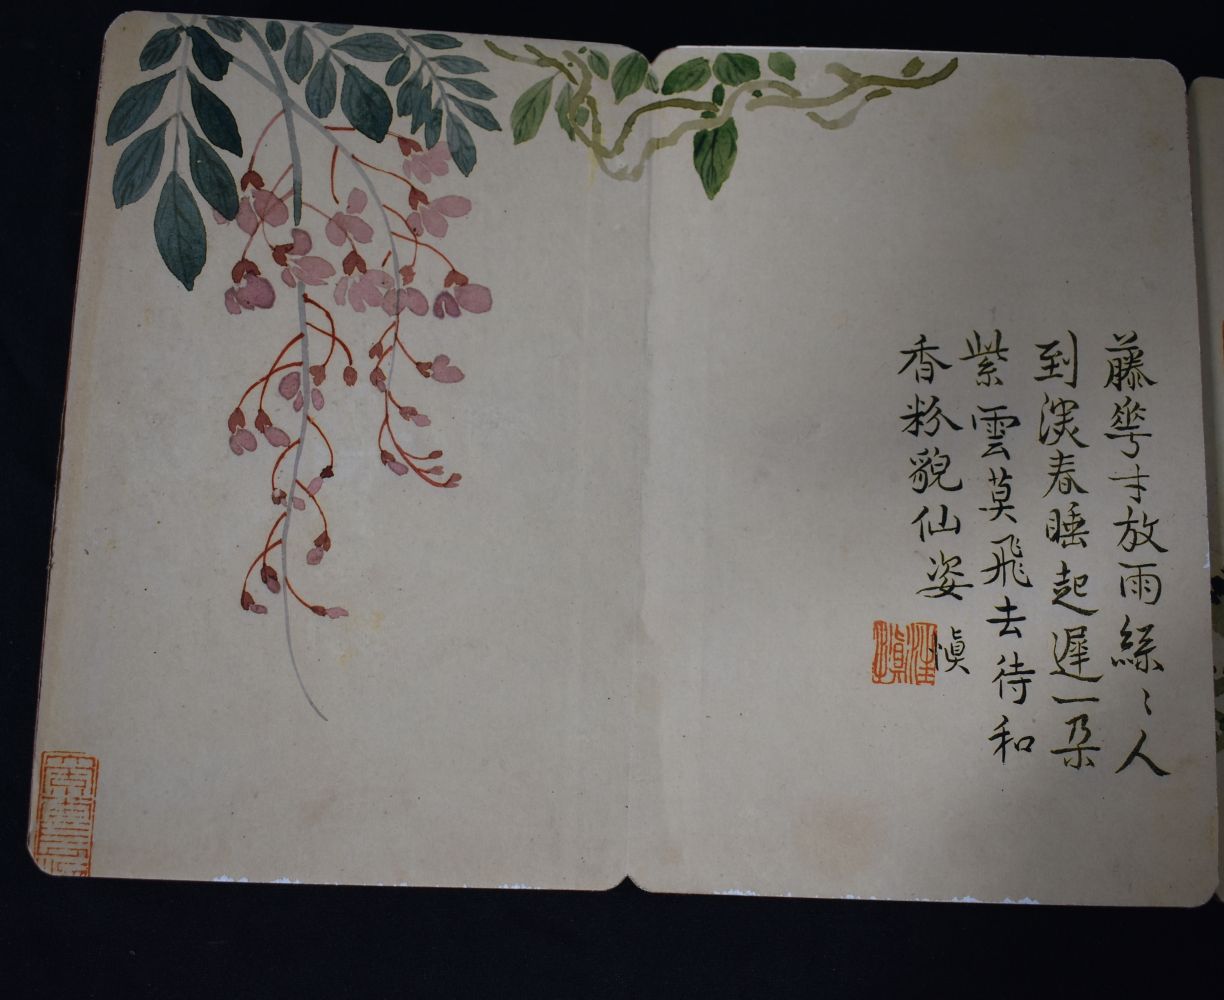 藤花才放雨絲〻人
到淡春睡起遲一朶
紫雲莫飛去待和
香粉貌仙姿
慎